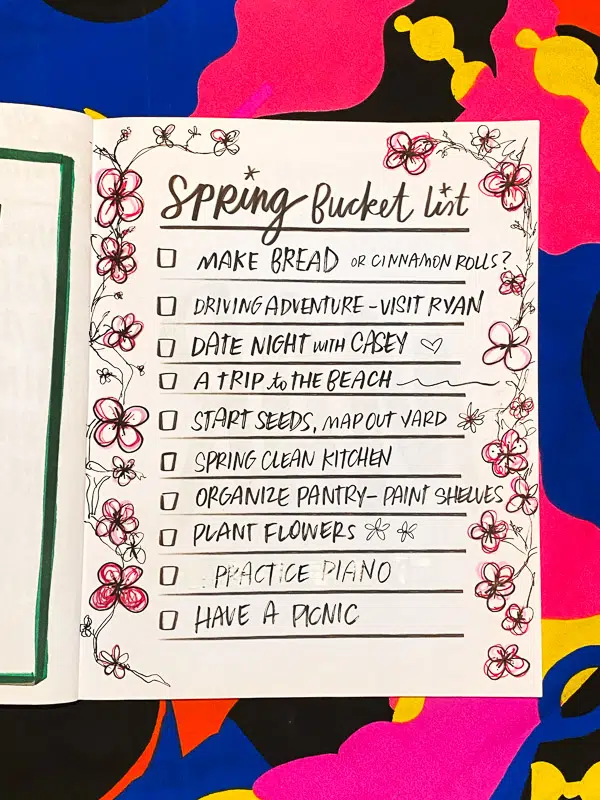 SPRING Bucket List
MAKE BREAD OR CINNAMON ROLLS?
DRIVING ADVENTURE - VISIT RYAN
DATE NIGHT WITH CASEY
A TRIP to THE BEACH
START SEEDS, MAP OUT YARD
SPRING CLEAN KITCHEN
ORGANIZE PANTRY - PAINT SHELVES
PLANT FLOWERS
PRACTICE PIANO
HAVE A PICNIC